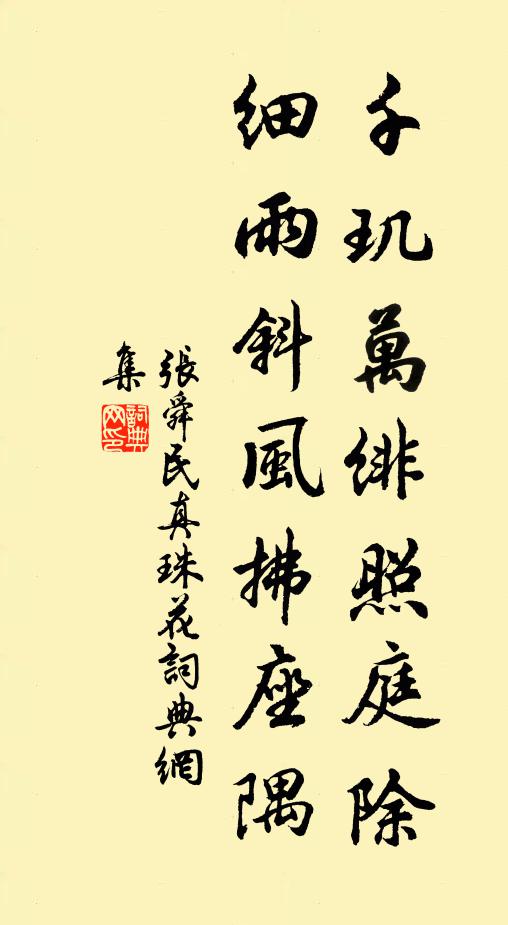 千玑萬緋照庭除
細雨斜風拂座隅
張舜民真珠花詞典網
集
詞典
网印